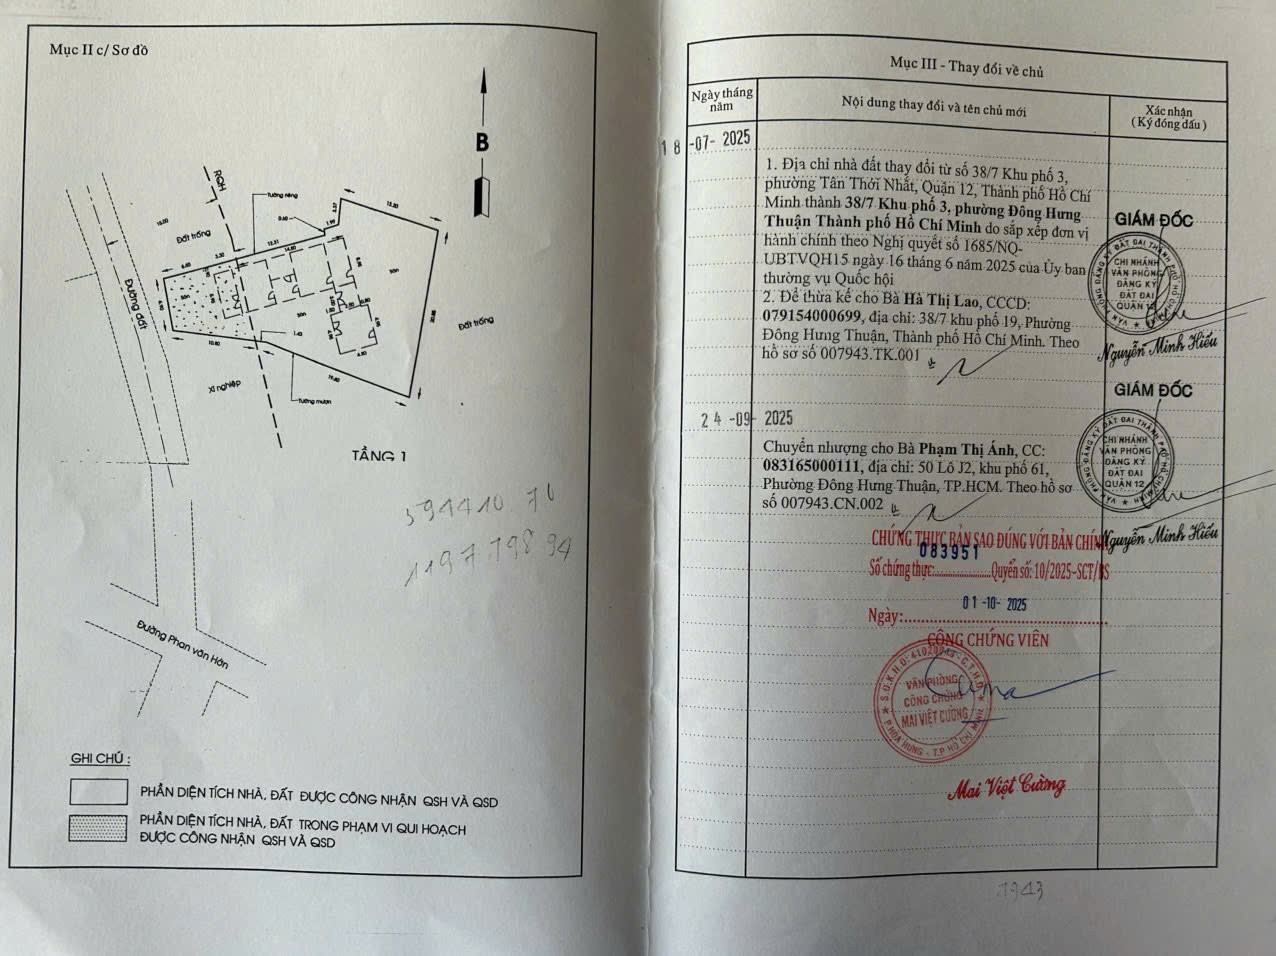 Mục II c/ Sơ đồ
B
RQH
Tường riêng
Đất trống
Đường đất
Đất trống
Xí nghiệp
Tường mượn
TẦNG 1
Đường Phan văn Hớn
GHI CHÚ :
PHẦN DIỆN TÍCH NHÀ, ĐẤT ĐƯỢC CÔNG NHẬN QSH VÀ QSD
PHẦN DIỆN TÍCH NHÀ, ĐẤT TRONG PHẠM VI QUI HOẠCH
ĐƯỢC CÔNG NHẬN QSH VÀ QSD
Mục III - Thay đổi về chủ
Ngày tháng
năm
Nội dung thay đổi và tên chủ mới
Xác nhận
( Ký đóng dấu )
18 -07- 2025
1. Địa chỉ nhà đất thay đổi từ số 38/7 Khu phố 3,
phường Tân Thới Nhất, Quận 12, Thành phố Hồ Chí
Minh thành 38/7 Khu phố 3, phường Đông Hưng
Thuận Thành phố Hồ Chí Minh do sắp xếp đơn vị
hành chính theo Nghị quyết số 1685/NQ-
UBTVQH15 ngày 16 tháng 6 năm 2025 của Ủy ban
thường vụ Quốc hội
2. Để thừa kế cho Bà Hà Thị Lao, CCCD:
079154000699, địa chỉ: 38/7 khu phố 19, Phường
Đông Hưng Thuận, Thành phố Hồ Chí Minh. Theo
hồ sơ số 007943.TK.001
GIÁM ĐỐC
VĂN PHÒNG ĐĂNG KÝ ĐẤT ĐAI THÀNH PHỐ HỒ CHÍ MINH
CHI NHÁNH
VĂN PHÒNG
ĐĂNG KÝ
ĐẤT ĐAI
QUẬN 12
Nguyễn Minh Hiếu
24 -09- 2025
Chuyển nhượng cho Bà Phạm Thị Ánh, CC:
083165000111, địa chỉ: 50 Lô J2, khu phố 61,
Phường Đông Hưng Thuận, TP.HCM. Theo hồ sơ
số 007943.CN.002
GIÁM ĐỐC
VĂN PHÒNG ĐĂNG KÝ ĐẤT ĐAI THÀNH PHỐ HỒ CHÍ MINH
CHI NHÁNH
VĂN PHÒNG
ĐĂNG KÝ
ĐẤT ĐAI
QUẬN 12
Nguyễn Minh Hiếu
CHỨNG THỰC BẢN SAO ĐÚNG VỚI BẢN CHÍNH
083951
Số chứng thực:............Quyển số: 10/2025-SCT/BS
01 -10- 2025
Ngày:
CÔNG CHỨNG VIÊN
VĂN PHÒNG
CÔNG CHỨNG
MAI VIỆT CƯỜNG
P.HÒA HƯNG - T.P HỒ CHÍ MINH
Mai Việt Cường
1943